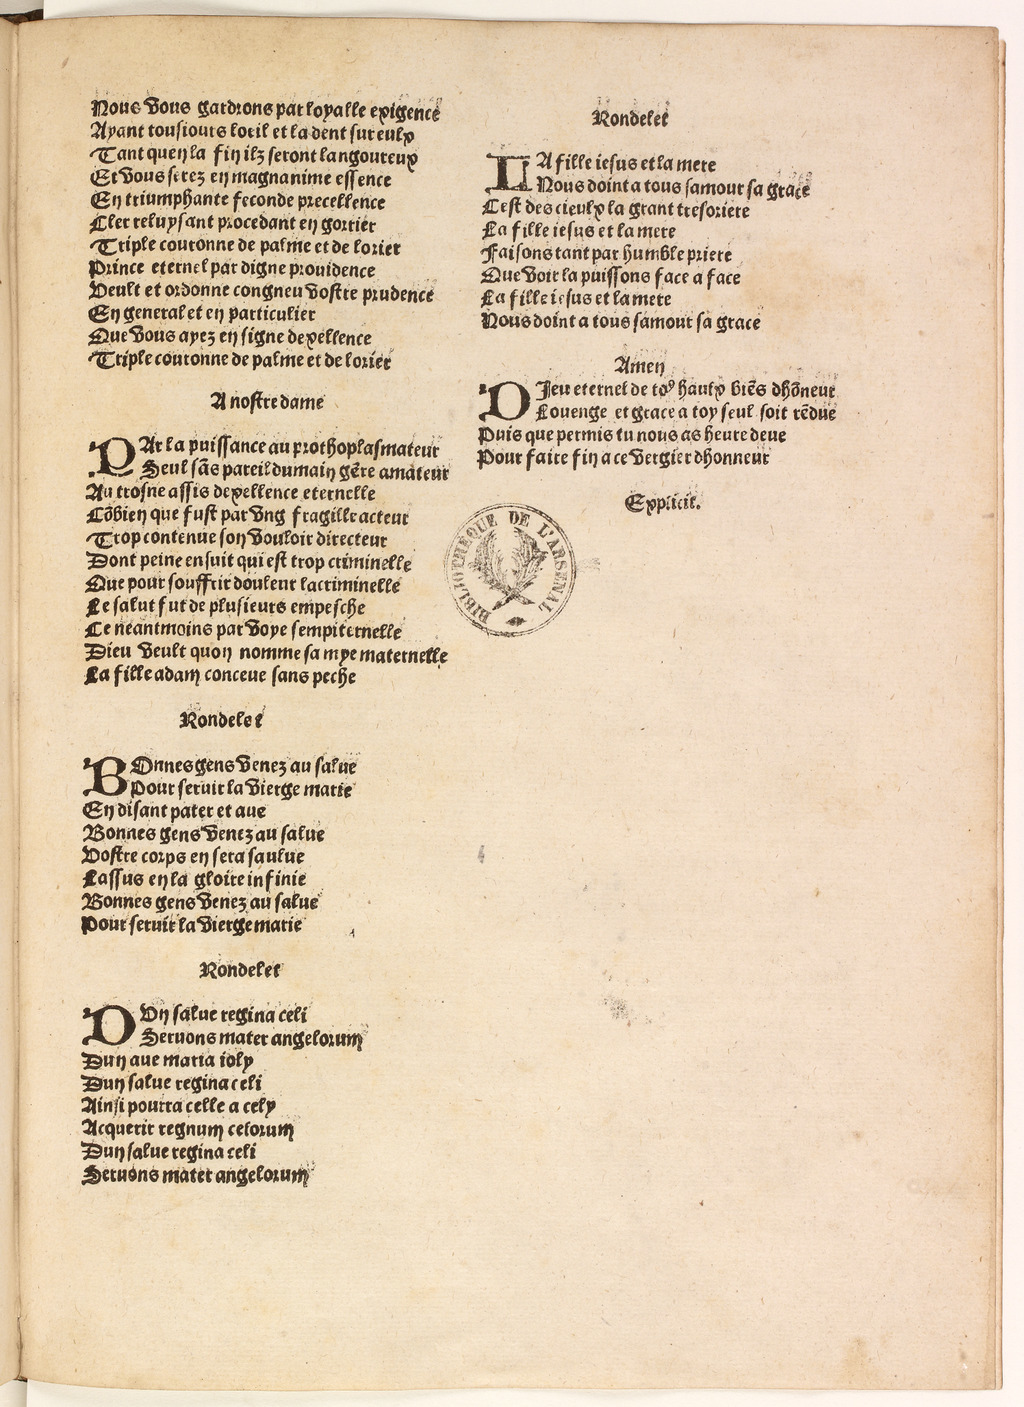 Nous vous gardrons par loyalle exigence
Ayant tousiours loeil et la dent sur eulx
Tant que en la fin ilz seront langoureux
Et vous serez en magnanime essence
En triumphante feconde precellence
Cler reluysant procedant en gorrier
Triple couronne de palme et de lorier
Prince eternel par digne prouidence
Veult et ordonne congneu vostre prudence
En general et en particulier
Que vous ayez en signe dexellence
Triple couronne de palme et de lorier
A nostre dame
PAr la puissance au prothoplasmateur
Seul sãs pareil dumain gẽre amateur
Au trosne assis dexellence eternelle
Cõbien que fust par vng fragille acteur
Trop contenue son vouloir directeur
Dont peine ensuit qui est trop criminelle
Que pour souffrir douleur lacriminelle
Le salut fut de plusieurs empesche
Ce neantmoins par voye sempiternelle
Dieu veult quon nomme sa mye maternelle
La fille adam conceue sans peche
Rondelet
BOnnes gens venez au salue
Pour seruir la vierge marie
En disant pater et aue
Bonnes gens venez au salue
Vostre corps en sera saulue
Lassus en la gloire infinie
Bonnes gens venez au salue
Pour seruir la vierge marie
Rondelet
DVn salue regina celi
Seruons mater angelorum
Dun aue maria ioly
Dun salue regina celi
Ainsi pourra celle a cely
Acquerir regnum celorum
Dun salue regina celi
Seruons mater angelorum
Rondelet
LA fille iesus et la mere
Nous doint a tous samour sa grace
Cest des cieulx la grant tresoriere
La fille iesus et la mere
Faisons tant par humble priere
Que voir la puissons face a face
La fille iesus et la mere
Nous doint a tous samour sa grace
Amen
DIeu eternel de toꝰ haulx biẽs dhõneur
Louenge et grace a toy seul soit rẽdue
Puis que permis tu nous as heure deue
Pour faire fin a ce vergier dhonneur
Explicit.
BIBLIOTHEQUE DE L'ARSENAL